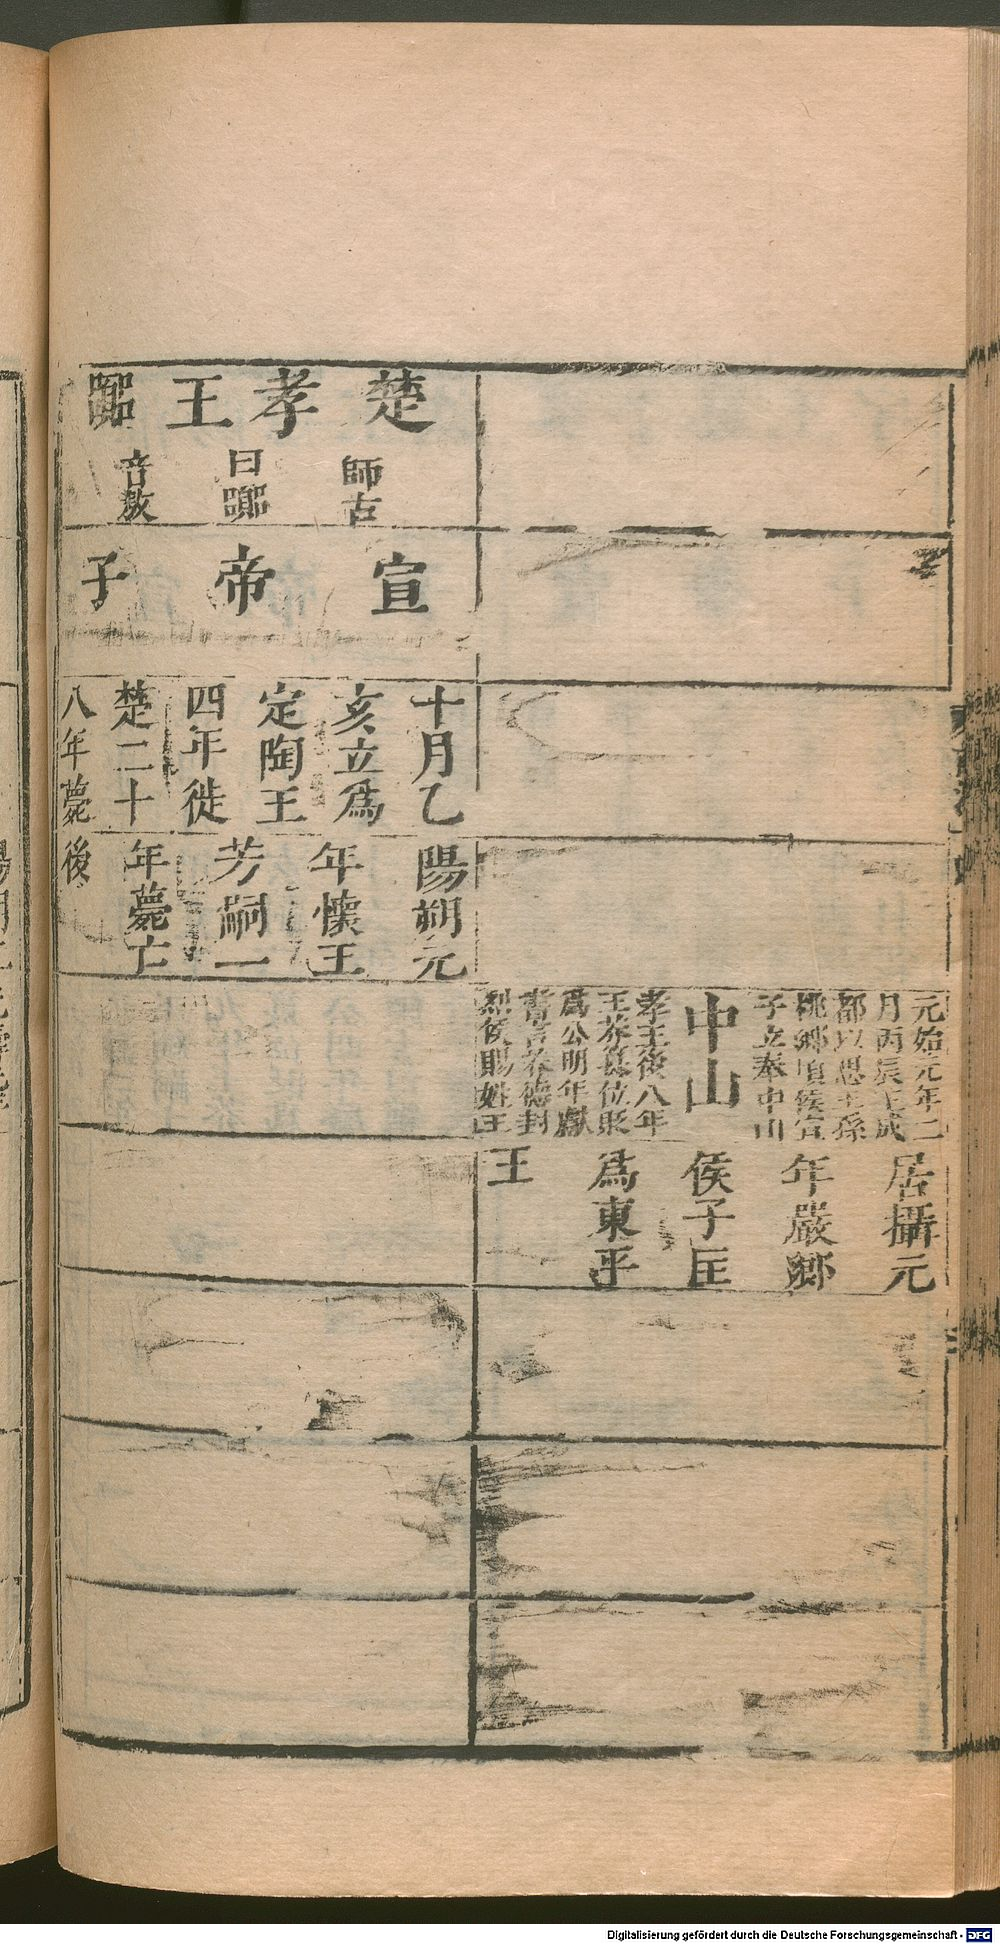 元始元年二
月丙辰王成
都以思王孫
桃鄉頃侯宣
子立奉中山
中山
孝王後八年
王莽簒位貶
爲公明年獻
書言莽德封
列侯賜姓王
居攝元
年嚴鄉
侯子匡
爲東平
王
楚孝王嚻
師古
曰嚻
音敖
宣帝子
十月乙
亥立爲
定陶王
四年徙
楚二十
八年薨
陽朔元
年懷王
芳嗣一
年薨亡
後
Digitalisierung gefördert durch die Deutsche Forschungsgemeinschaft - DFG